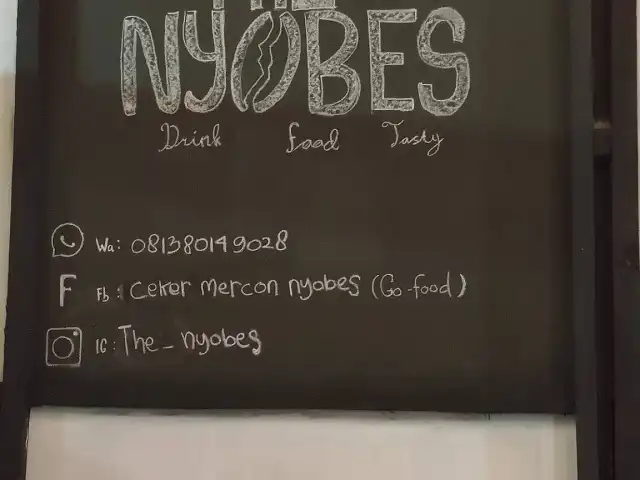 THE
NYOBES
Drink Food Tasty
Wa: 081380149028
F Fb: Ceker mercon nyobes (Go-food)
IG: The_nyobes